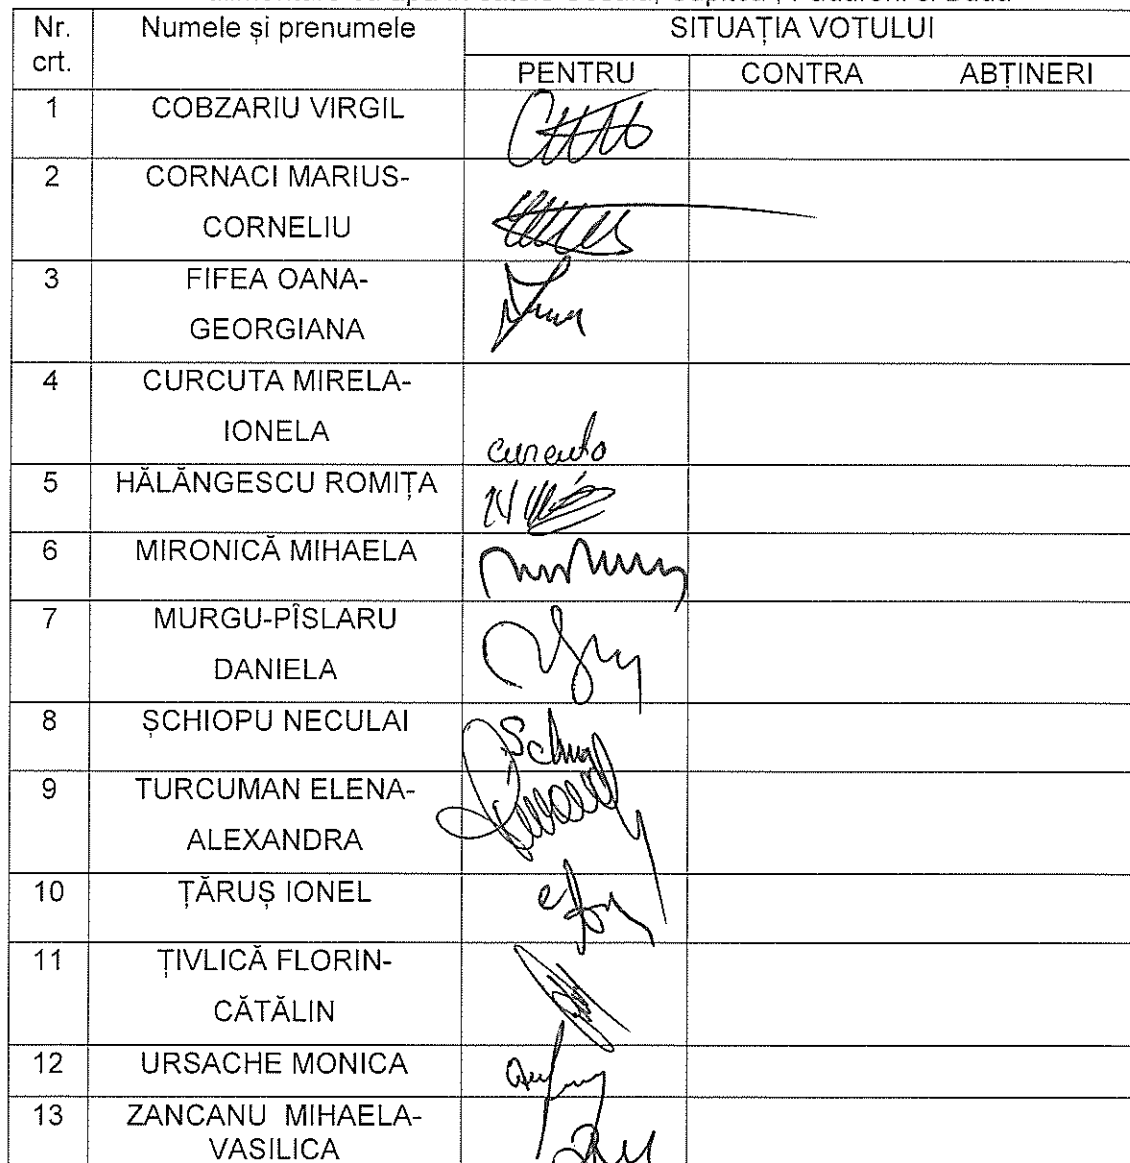 Nr. crt. Numele și prenumele SITUAȚIA VOTULUI
PENTRU CONTRA ABȚINERI
1 COBZARIU VIRGIL
2 CORNACI MARIUS-
CORNELIU
3 FIFEA OANA-
GEORGIANA
4 CURCUTA MIRELA-
IONELA
5 HĂLĂNGESCU ROMIȚA
6 MIRONICĂ MIHAELA
7 MURGU-PÎSLARU
DANIELA
8 ȘCHIOPU NECULAI
9 TURCUMAN ELENA-
ALEXANDRA
10 ȚĂRUȘ IONEL
11 ȚIVLICĂ FLORIN-
CĂTĂLIN
12 URSACHE MONICA
13 ZANCANU MIHAELA-
VASILICA